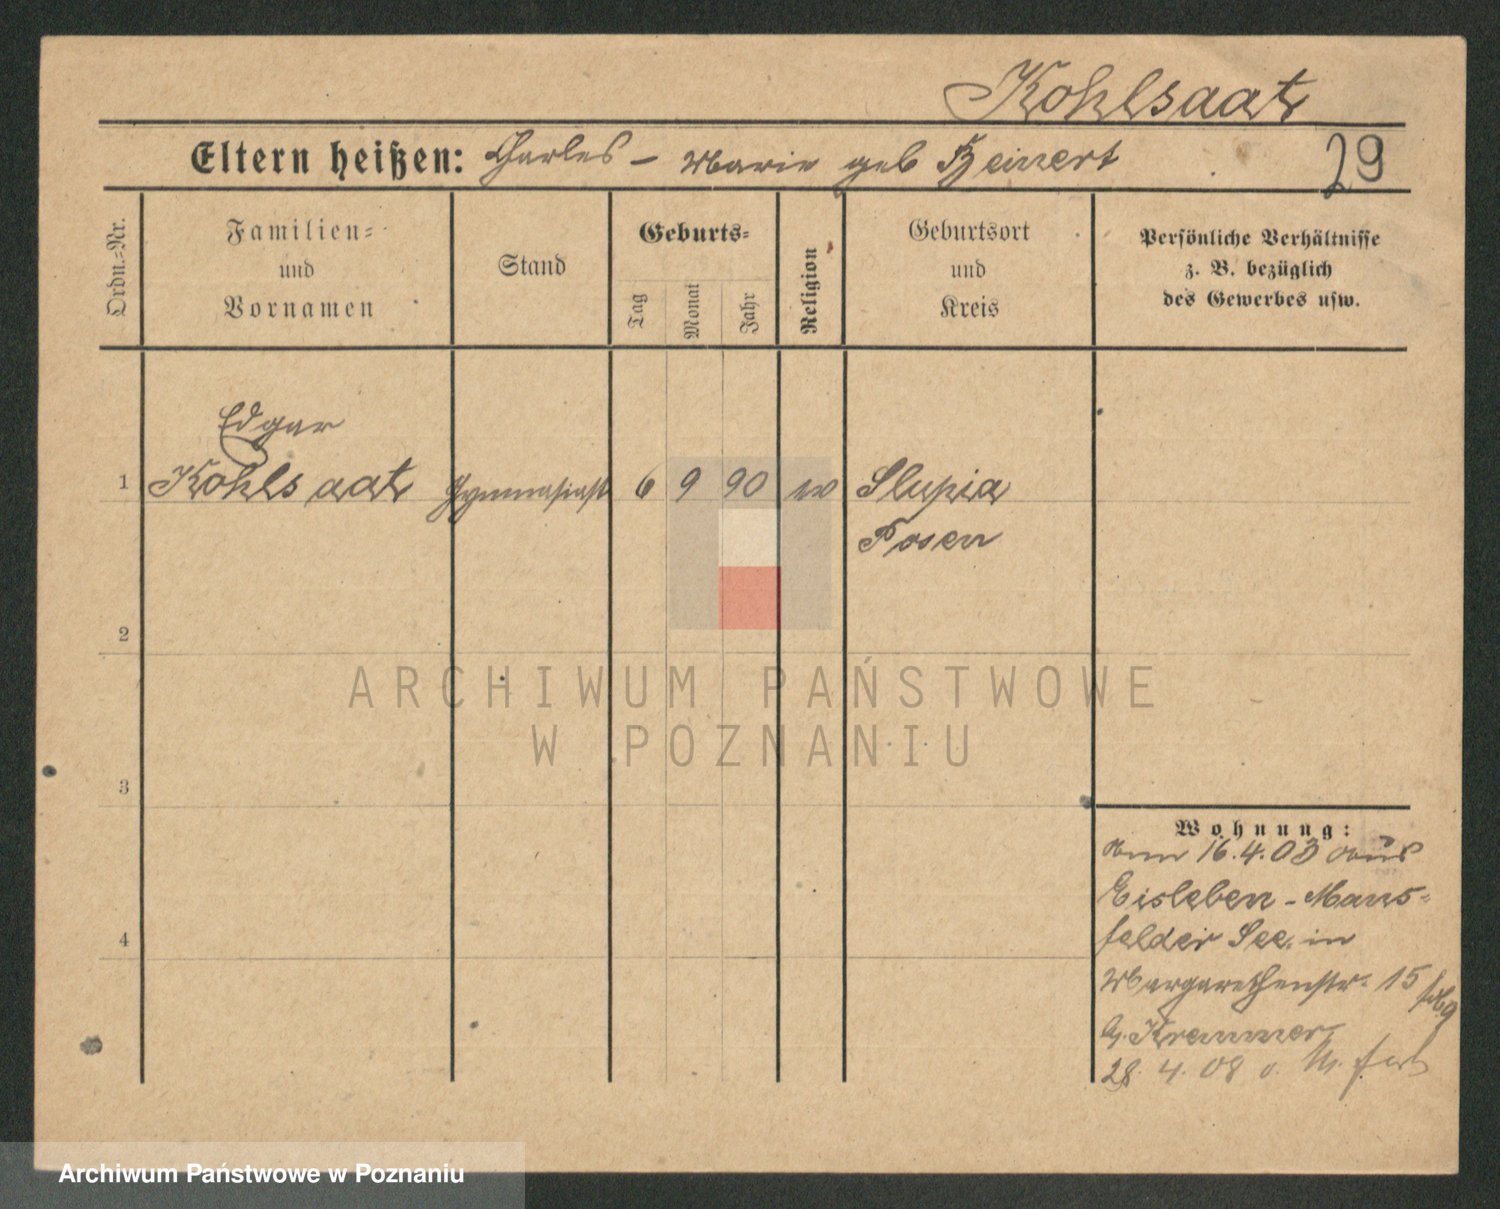 Kohlsaat
Eltern heißen: Charles – Marie geb Beinert
29
Ordn.-Nr.
Familien-
und
Vornamen
Stand
Geburts-
Tag
Monat
Jahr
Religion
Geburtsort
und
Kreis
Persönliche Verhältnisse
z. B. bezüglich
des Gewerbes usw.
Edgar
1 Kohlsaat Gymnasiast 6 9 90 ev Slupia
Posen
2
ARCHIWUM PAŃSTWOWE
W POZNANIU
3
4
Wohnung:
16.4.03 aus
Eisleben - Mans-
felder See. in
Margarethenstr. 15
Kremmer
28. 4. 08
Archiwum Państwowe w Poznaniu